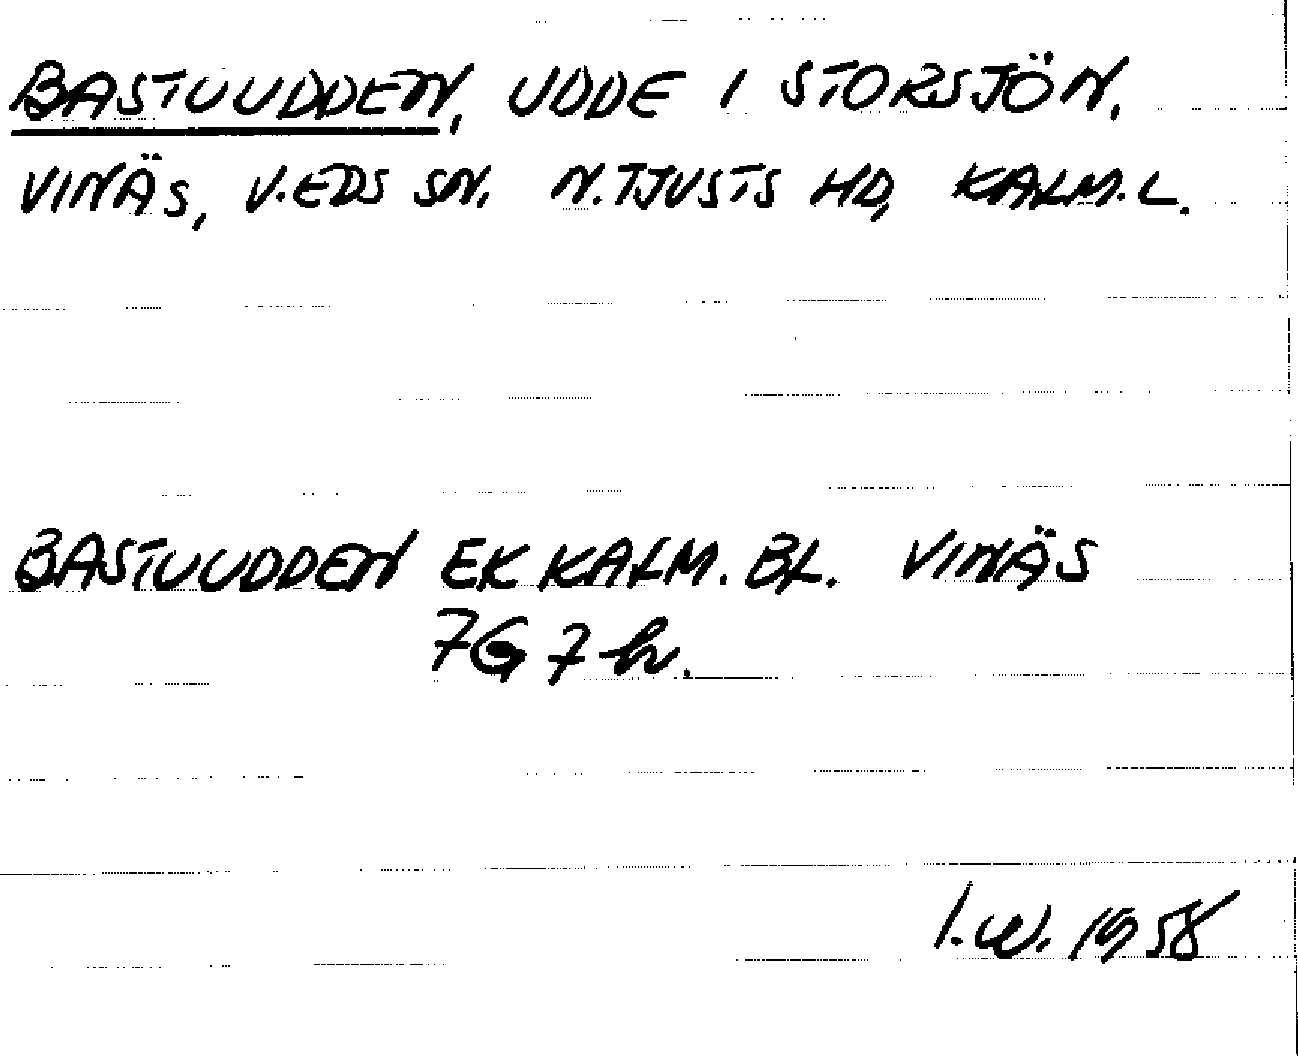 BASTUUDDEN, UDDE I STORSJÖN,
VINÄS, V.EDS SN. N.TJUSTS HD, KALM.L.
BASTUUDDEN EK KALM. BL. VINÄS
7G 7h.
I.W. 1958